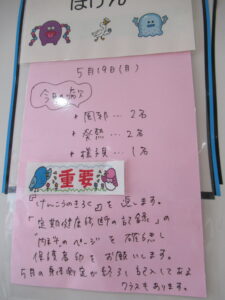 ほけん
5月19日(月)
今日の病欠
・風邪… 2名
・発熱… 2名
・様見… 1名
重要
『けんこうのきろく』を返します。
・定期健康診断の記録」の
「内科のページ」を確認し
保護者印をお願いします。
5月の身体測定が終了し記入してある
クラスもあります。